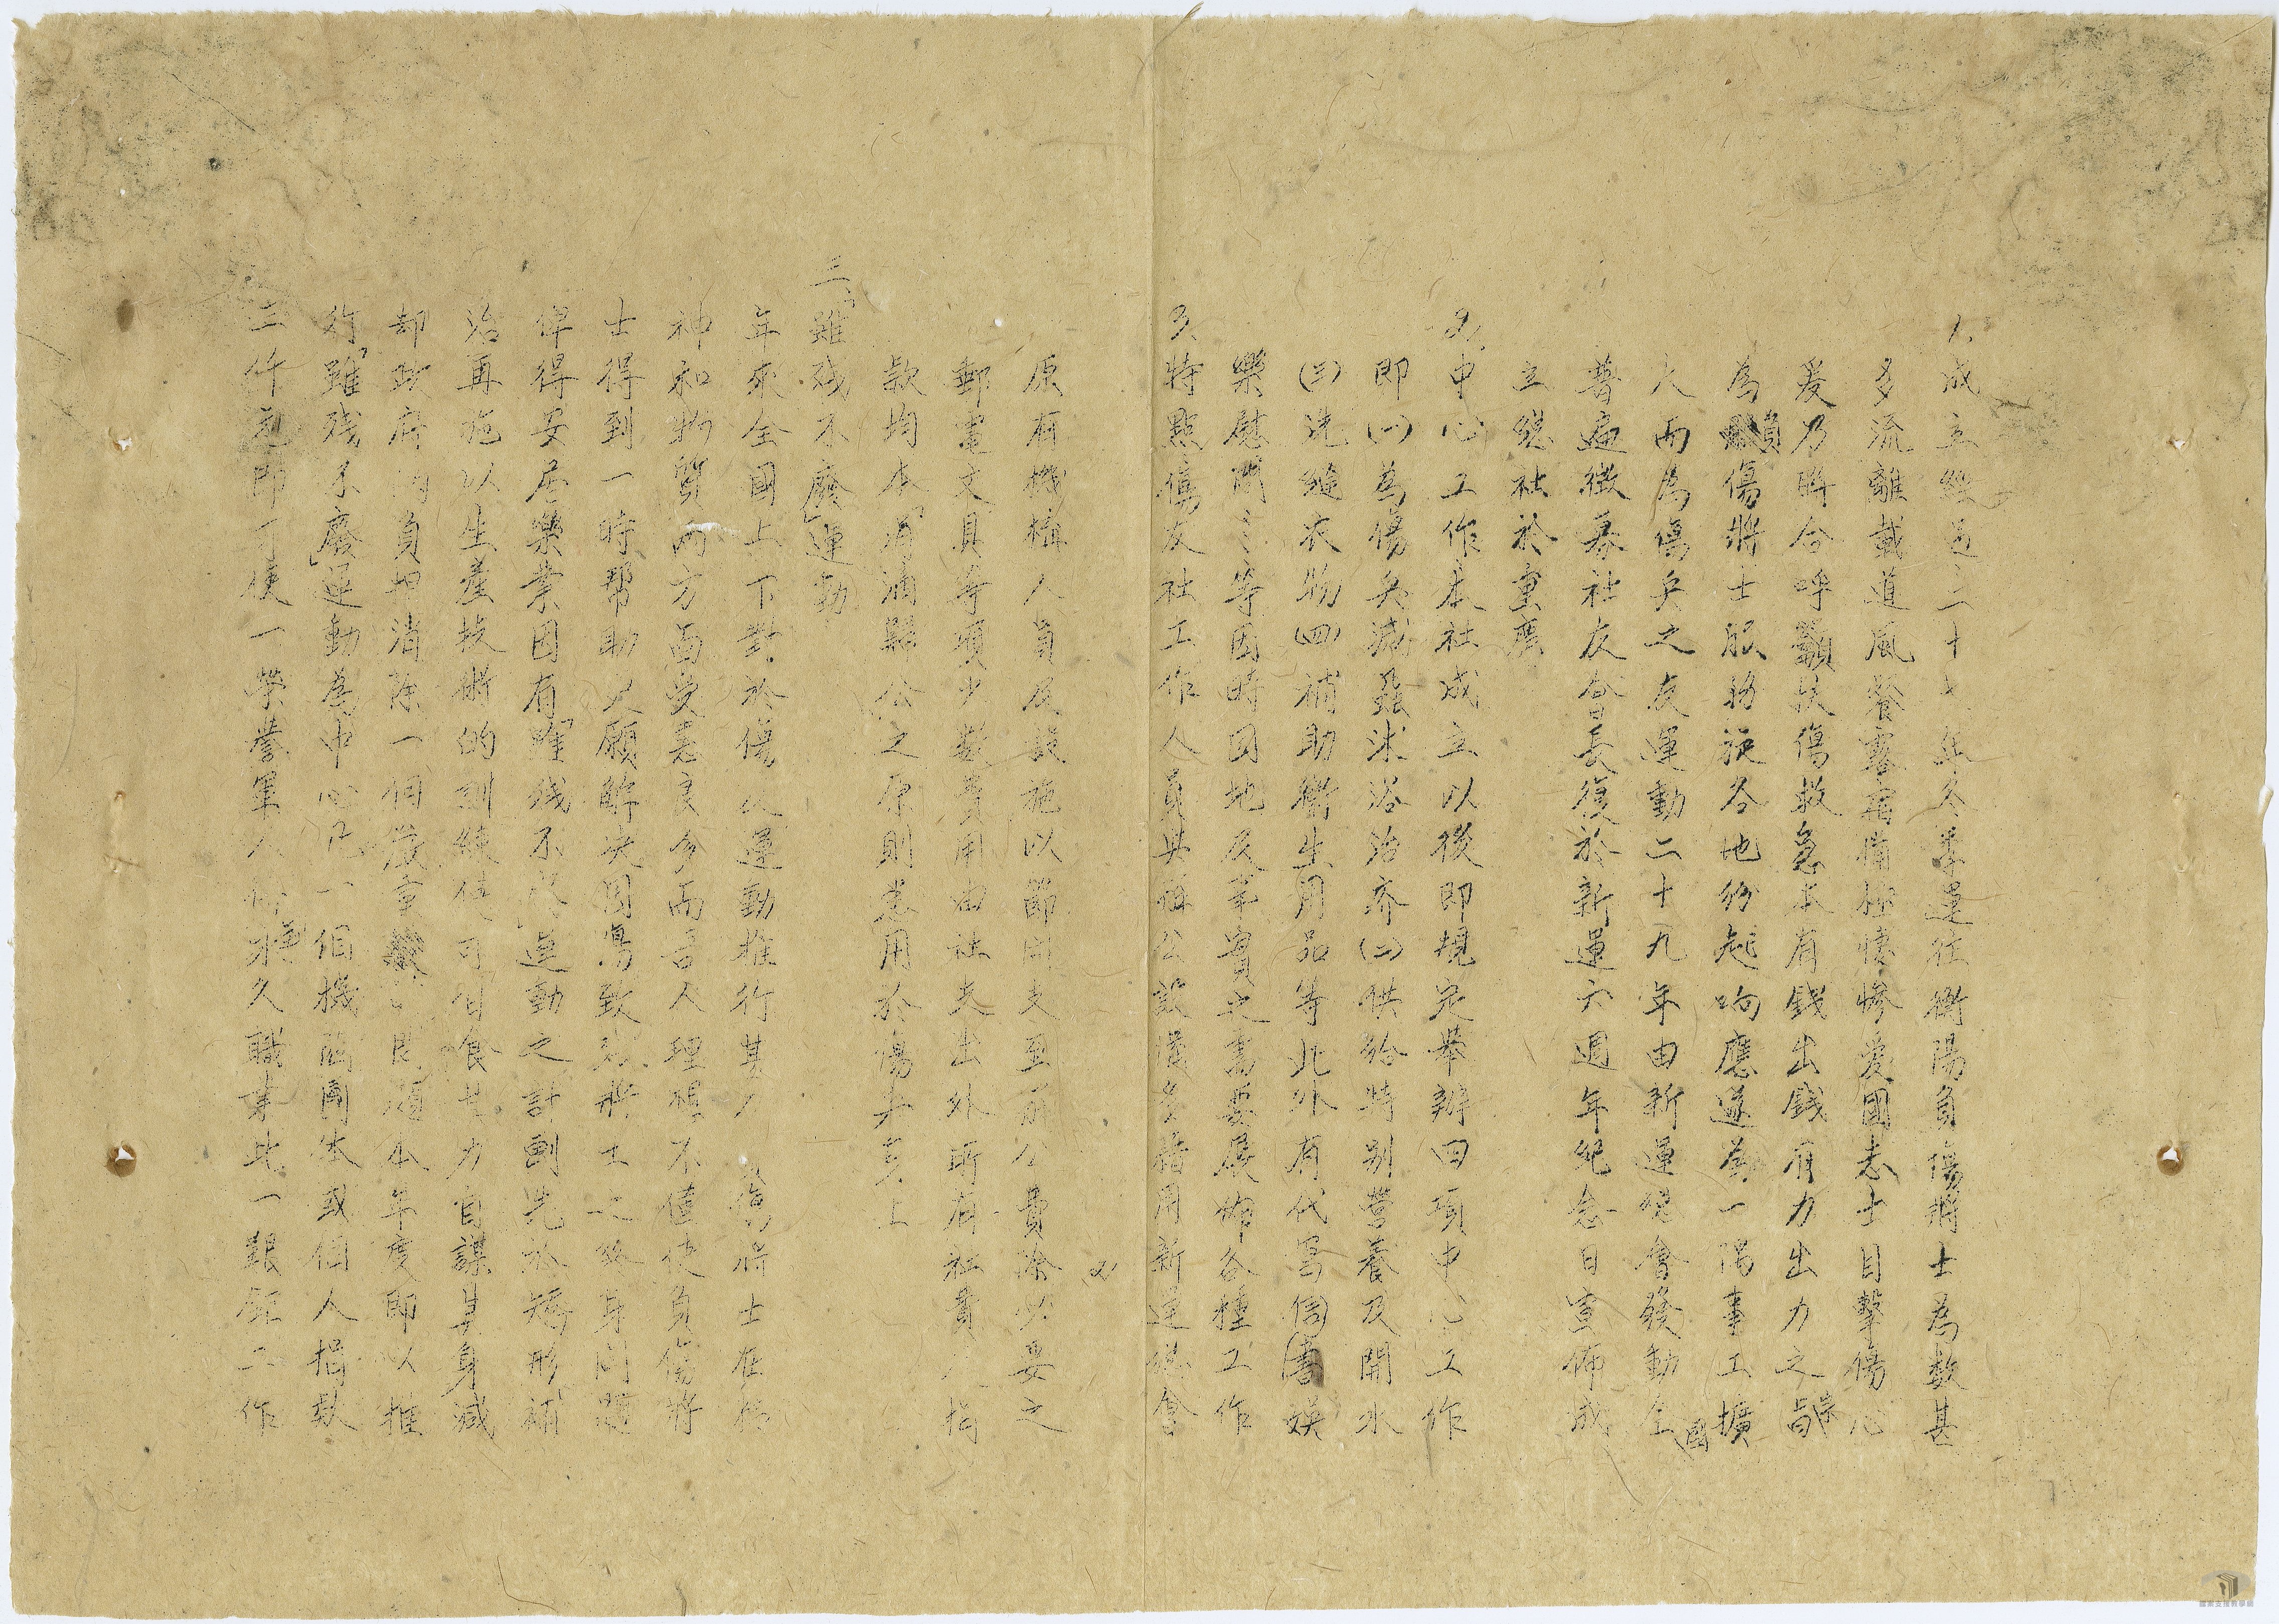 1.成立經過二十七年冬季運往衡陽負傷將士為數甚
多流離載道風餐露宿情極悽慘愛國志士目擊傷心
爰乃聯合呼籲扶傷救急本有錢出錢有力出力之宗旨
為負傷將士服務旋各地紛起响應遂為一隅事工擴
大而為傷兵之友運動二十九年由新運總會發動全國
普遍徵募社友會長復於新運六週年紀念日宣佈成
立總社於重慶
2.中心工作本社成立以後即規定舉辦四項中心工作
即(一)為傷兵滅蝨沐浴治疥(二)供給特別營養及開水
(三)洗縫衣物(四)補助衛生用品等此外有代寫信書娛
樂慰問等因時因地及事實之需要展開各種工作
3.特點傷友社工作人員與辦公設備多借用新運總會
原有機構人員及設施以節開支至前公費除必要之
郵電文具等項少數費用由社支出外所有社費及捐
款均本「涓滴歸公」之原則悉用於傷兵身上
三、「雖殘不廢」運動
年來全國上下對於傷友運動推行甚力負傷將士在精
神和物質兩方面受惠良多而吾人理想不僅使負傷將
士得到一時幫助又願解決因傷致殘將士之終身問題
俾得安居樂業因有「雖殘不廢」運動之計劃先於矯形補
治再施以生產技術的訓練使可自食其力自謀其身減
却政府負担消除一個嚴重問題本年度即以推
行「雖殘不廢」運動為中心凡一個機關團体或個人捐款
二仟元即可使一榮譽軍人永久職業此一艱鉅工作
2